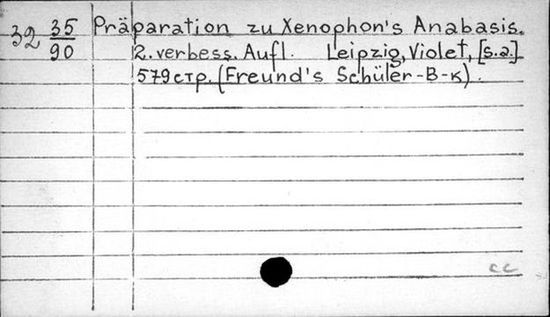 32 35/90 Präparation zu Xenophon's Anabasis.
2. verbess. Aufl. Leipzig, Violet, [s.a.]
579 стр. (Freund's Schüler-B-k).
cc